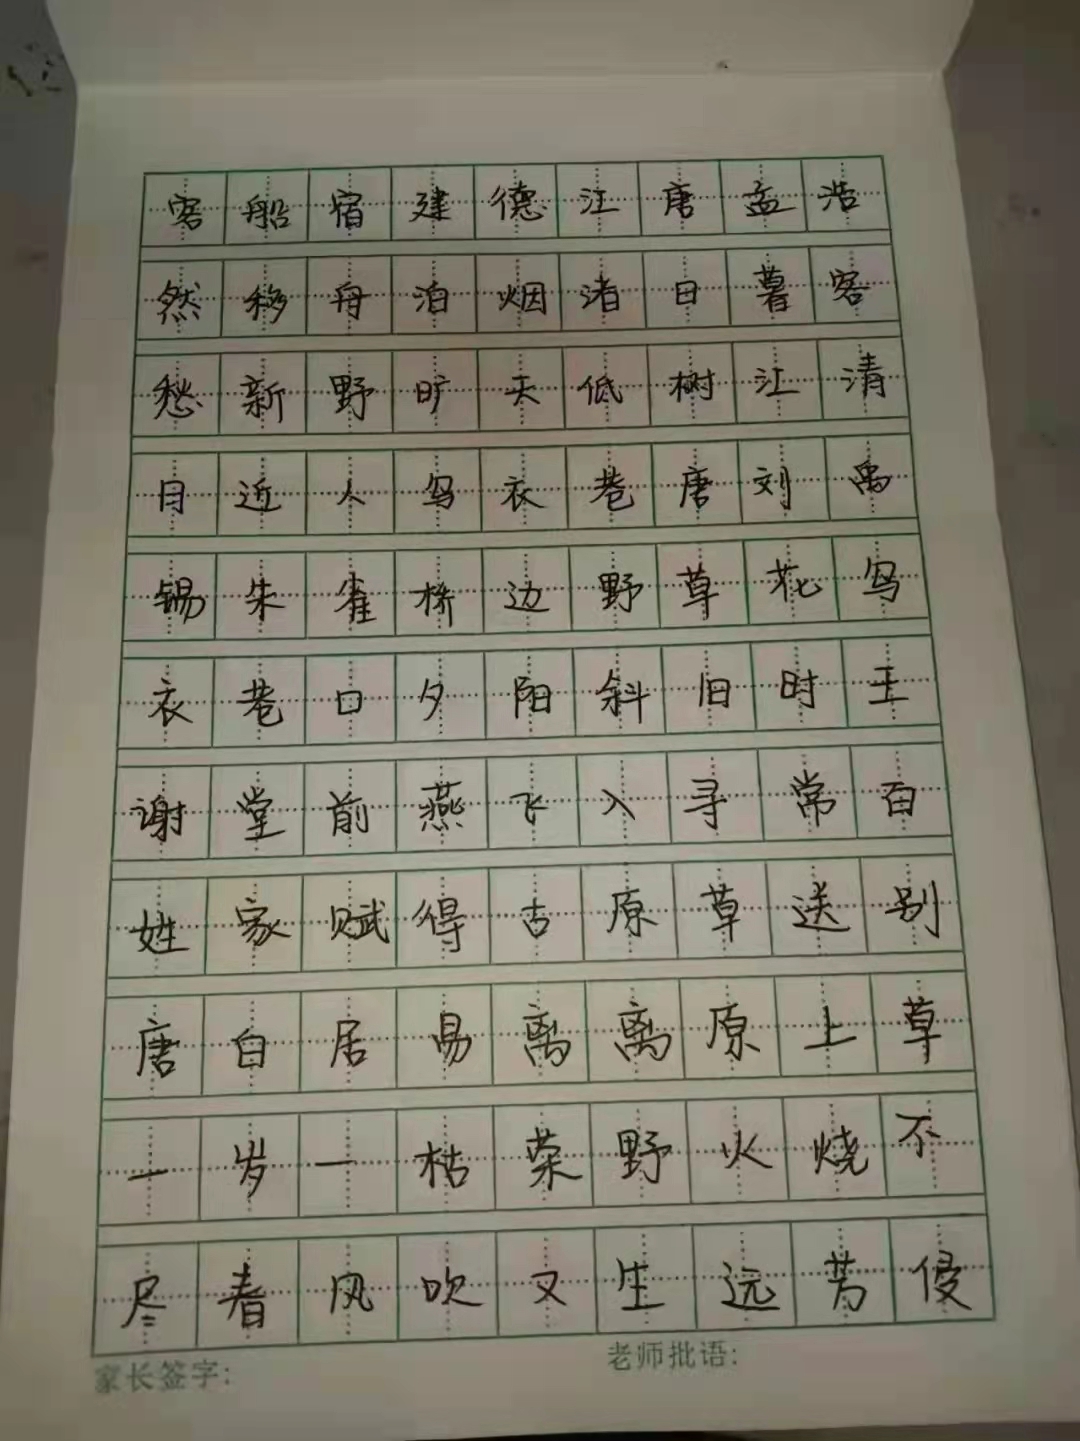 客船宿建德江唐孟浩
然移舟泊烟渚日暮客
愁新野旷天低树江清
月近人乌衣巷唐刘禹
锡朱雀桥边野草花乌
衣巷口夕阳斜旧时王
谢堂前燕飞入寻常百
姓家赋得古原草送别
唐白居易离离原上草
一岁一枯荣野火烧不
尽春风吹又生远芳侵
家长签字:
老师批语: